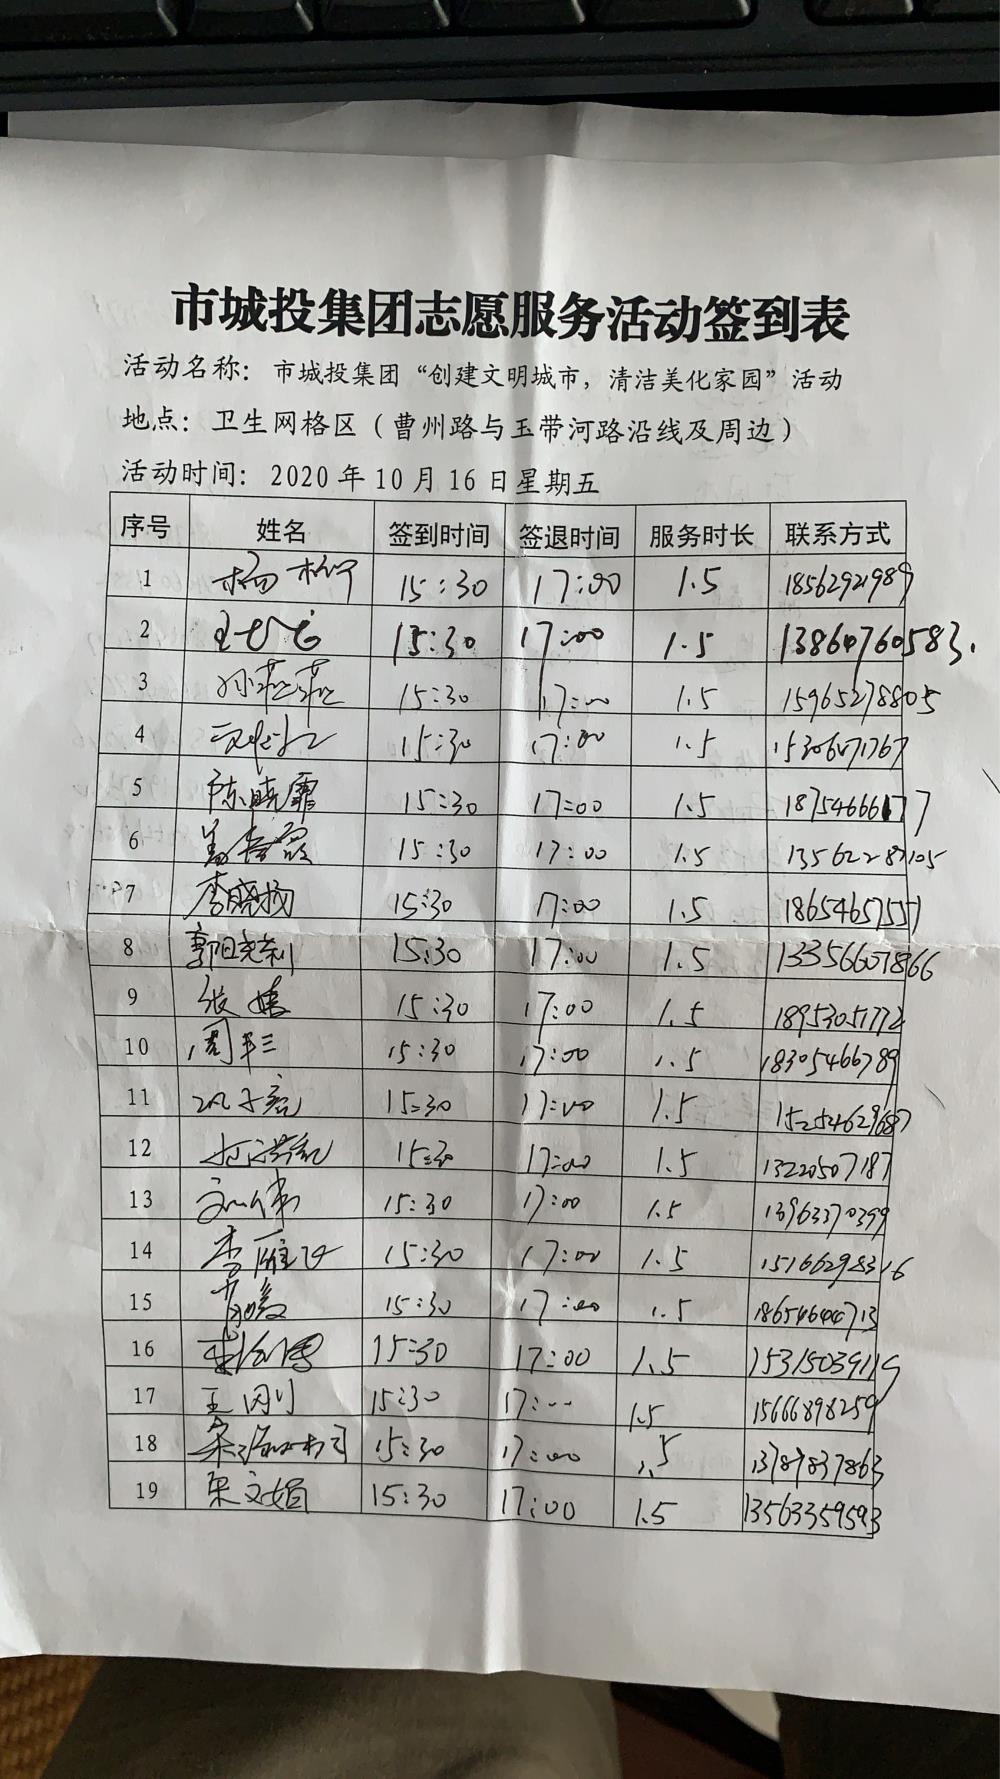 市城投集团志愿服务活动签到表
活动名称：市城投集团“创建文明城市，清洁美化家园”活动
地点：卫生网格区（曹州路与玉带河路沿线及周边）
活动时间：2020年10月16日星期五
序号 姓名 签到时间 签退时间 服务时长 联系方式
1 杨柳 15:30 17:00 1.5 18562921989
2 15:30 17:00 1.5 13864760583.
3 孙菲菲 15:30 17:00 1.5 15965278805
4 15:30 17:00 1.5 15306471767
5 陈晓霏 15:30 17:00 1.5
6 15:30 17:00 1.5 13562287105
7 李晓扬 15:30 17:00 1.5 18654657557
8 15:30 17:00 1.5 13356607866
9 张婧 15:30 17:00 1.5 18953051772
10 15:30 17:00 1.5 18305466789
11 15:30 17:00 1.5 15254629687
12 15:30 17:00 1.5 13220507187
13 刘伟 15:30 17:00 1.5 13963370399
14 李雁飞 15:30 17:00 1.5 15166298316
15 15:30 17:00 1.5 18654644713
16 15:30 17:00 1.5 15315039119
17 王刚 15:30 17:00 1.5 15666898259
18 15:30 17:00 1.5 13787837863
19 宋文娟 15:30 17:00 1.5 13563359593